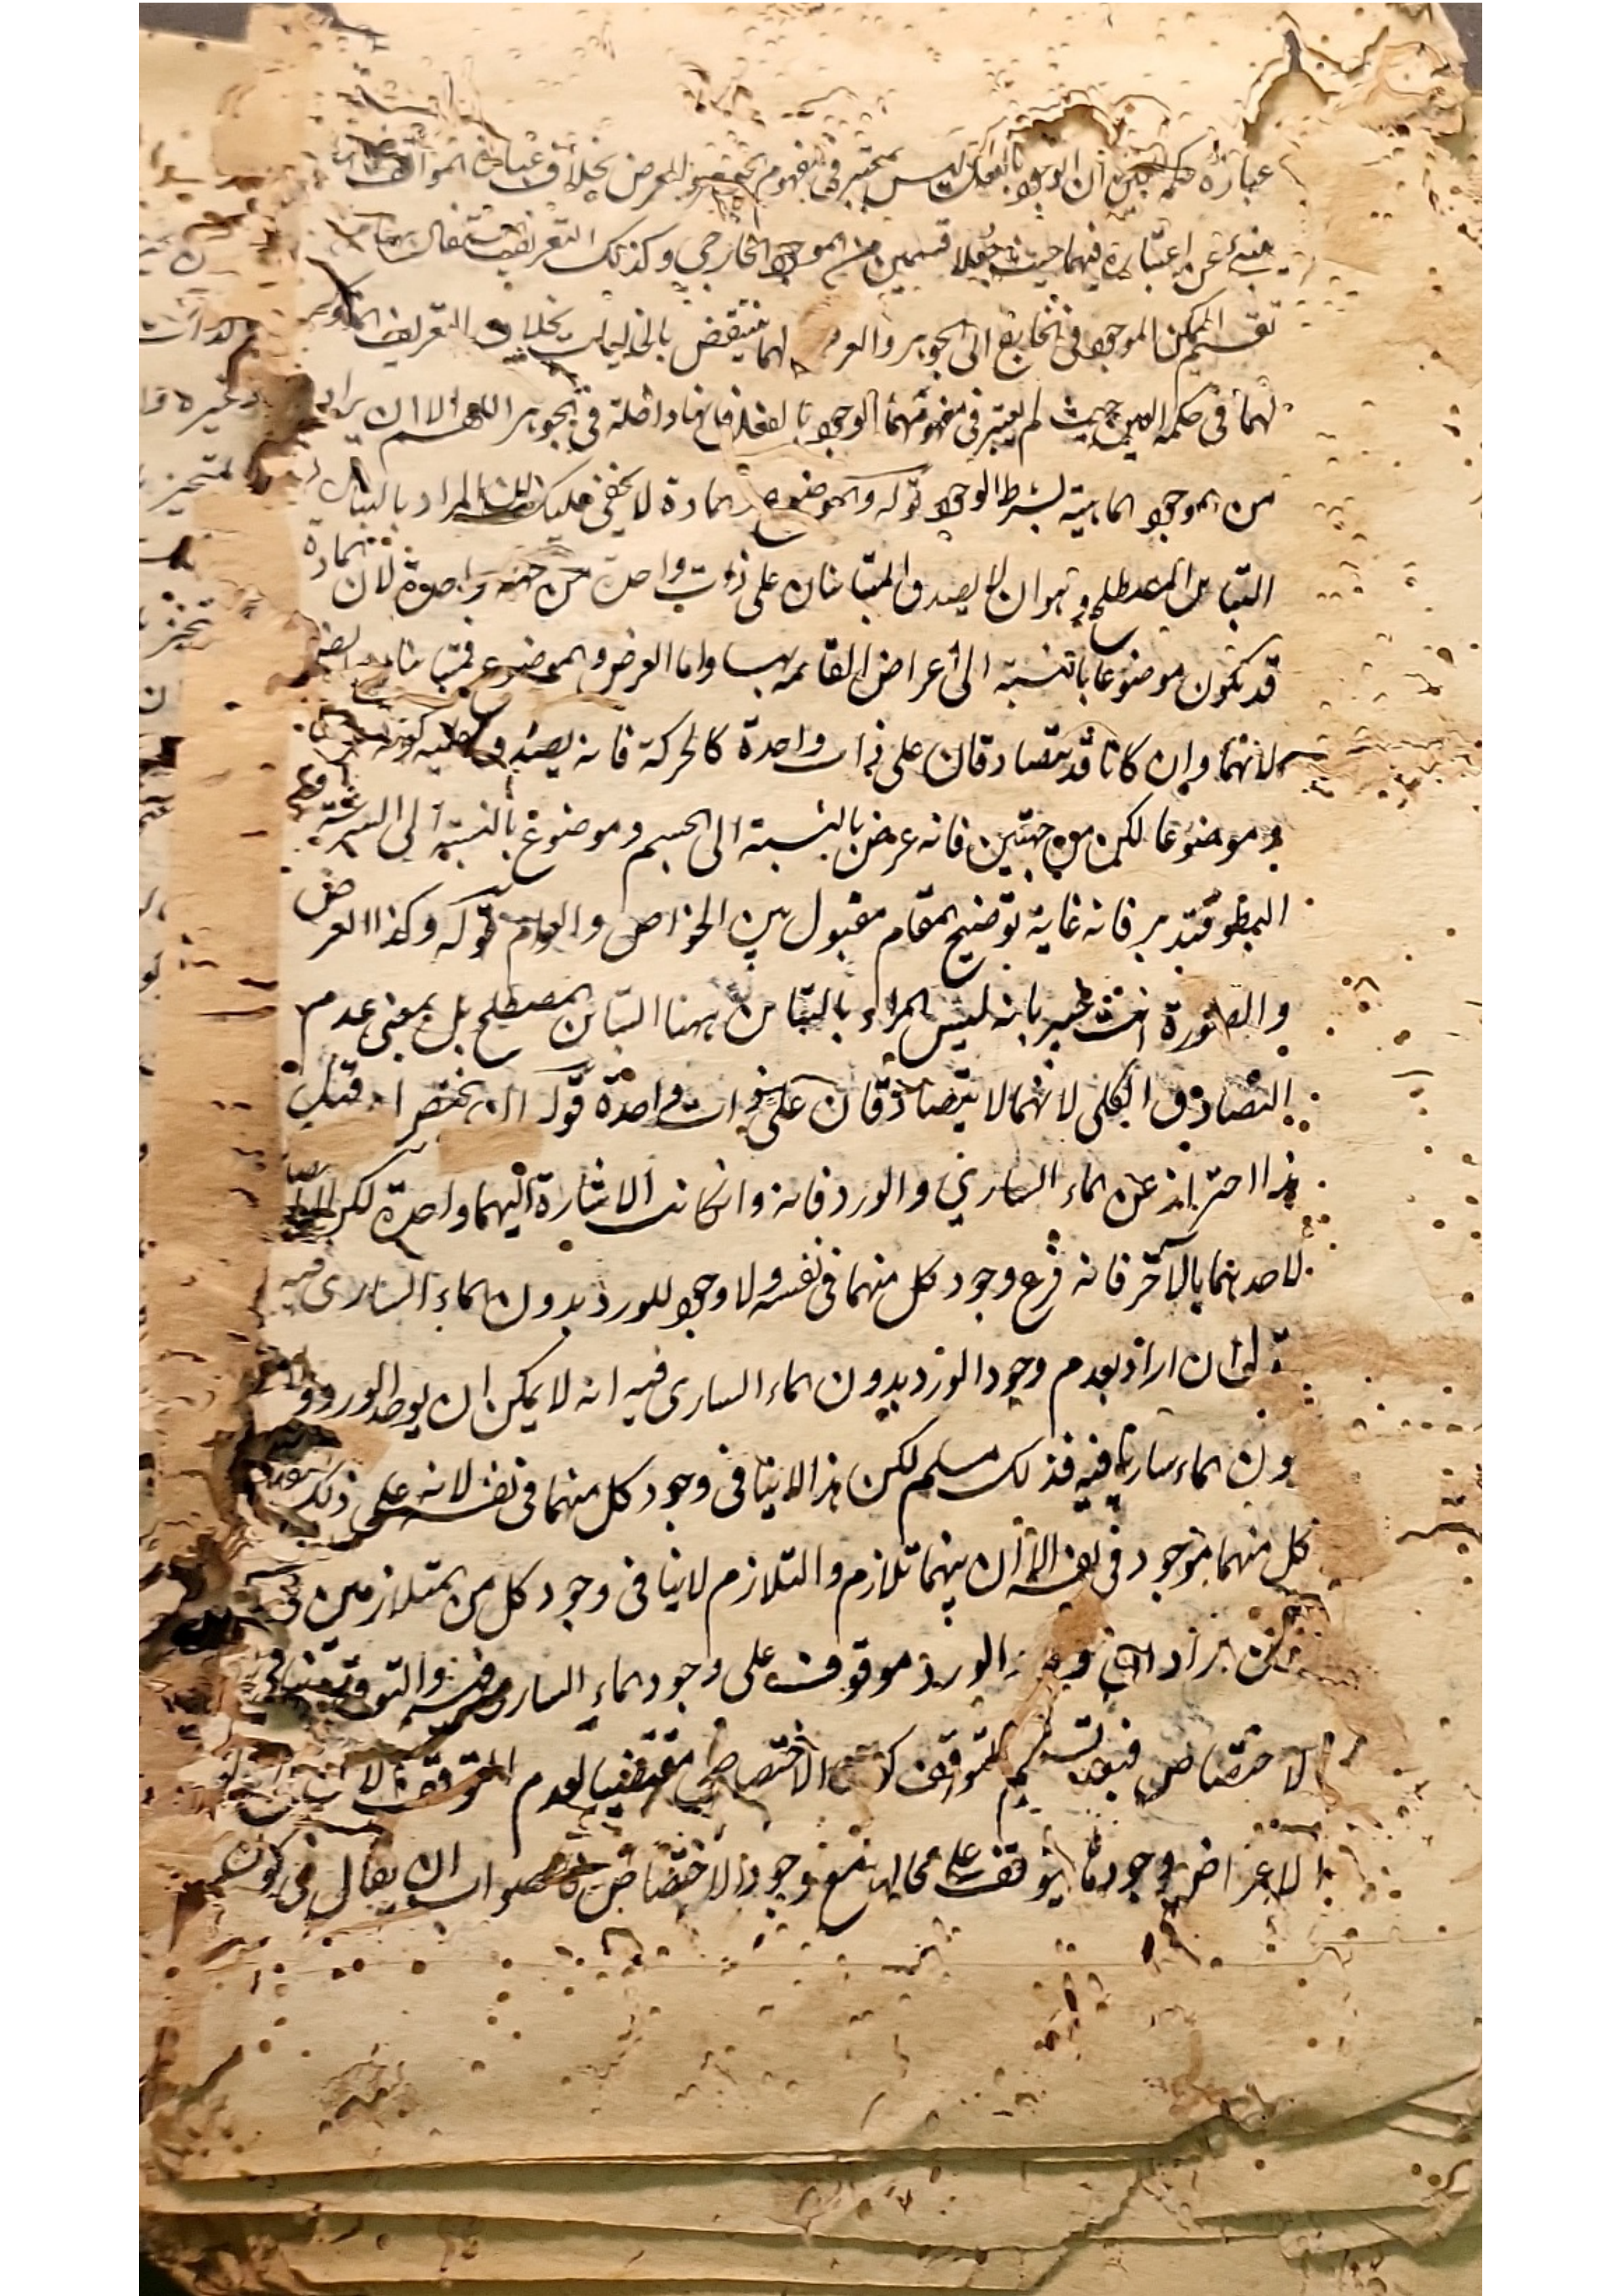 عبارة حكمة العين ان الوجود بالفعل ليس بمعتبر في مفهوم الجوهر والعرض بخلاف عبارة المواقف
منبئ عن اعتباره فيهما حيث جعلا قسمين من الموجود الخارجي وكذلك التعريف
تقسيم الممكن الموجود في الخارج الى الجوهر والعرض لهما ينتقض بالخياليات بخلاف التعريف المذكور
لهما في حكمة العين حيث لم يعتبر في مفهومهما الوجود بالفعل فانها داخلة في الجوهر اللهم الا ان يراد
من الموجود الماهية بشرط الوجود قوله والموضوع والمادة لا يخفى عليك ان المراد بالتباين
التباين المصطلح وهو ان لا يصدق المتباينان على ذات واحدة من جهة واحدة لان المادة
قد تكون موضوعا بالنسبة الى اعراض القائمة بها واما العرض والموضوع فمتباينان ايضا
لانهما وان كانا قد يتصادقان على ذات واحدة كالحركة فانه يصدق عليه كونه
وموضوعا لكن من جهتين فانه عرض بالنسبة الى الجسم وموضوع بالنسبة الى السرعة
البطو فتدبر فانه غاية توضيح المقام مقبول بين الخواص والعوام قوله وكذا العرض
والصورة انت خبير بانه ليس المراد بالتباين ههنا التباين المصطلح بل بمعنى عدم
التصادق الكلي لانهما لا يتصادقان على ذات واحدة قوله ان يختص اه قيل
هذا احتراز عن الماء الساري والورد فانه وان كانت الاشارة اليهما واحدة لكن
لاحدهما بالآخر فانه فرع وجود كل منهما في نفسه ولا وجود للورد بدون الماء الساري فيه
ان اراد بعدم وجود الورد بدون الماء الساري فيه انه لا يمكن ان يوجد الورد
ون الماء ساريا فيه فذلك مسلم لكن هذا لا ينافي وجود كل منهما في نفسه لانه على ذلك
كل منهما موجود في نفسه الا ان بينهما تلازم والتلازم لا ينافي وجود كل من المتلازمين في
الورد موقوف على وجود الماء الساري فيه والتوقف
الاختصاص فبعد تسليم التوقف كون الاختصاص مقتضيا لعدم التوقف
الاعراض وجودها يتوقف على محالها مع وجود الاختصاص فالصواب ان يقال في كون